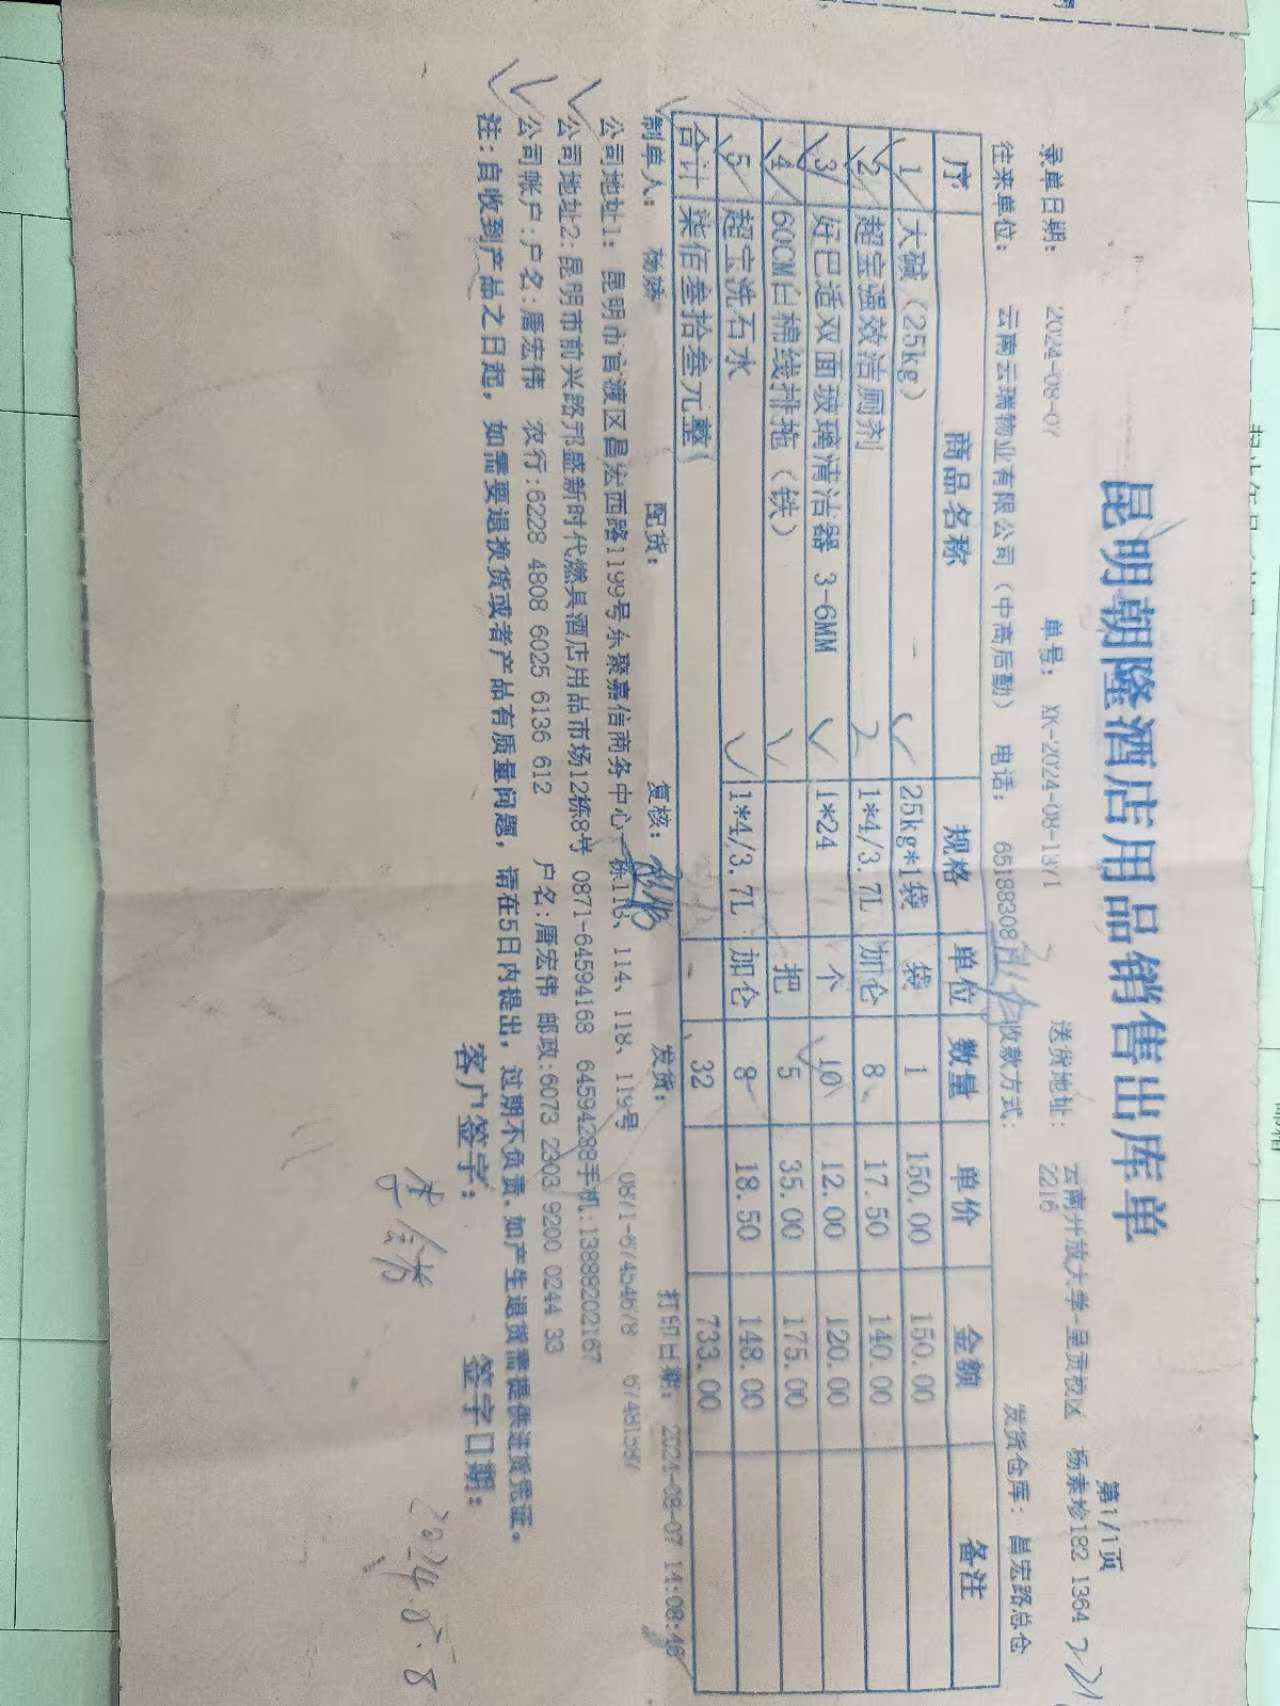 昆明朝隆酒店用品销售出库单
第1/1页
录单日期: 2024-08-07 单号: XK-2024-08-1371 送货地址: 云南开放大学-呈贡校区 杨素珍182 1364 2216
往来单位: 云南云瑞物业有限公司(中高后勤) 电话: 65188308 收款方式: 发货仓库: 昌宏路总仓
序 商品名称 规格 单位 数量 单价 金额 备注
1 大碱(25kg) 25kg*1袋 袋 1 150.00 150.00
2 超宝强效洁厕剂 1*4/3.7L 加仑 8 17.50 140.00
3 好巴适双面玻璃清洁器 3-6MM 1*24 个 10 12.00 120.00
4 60CM白棉线排拖(铁) 把 5 35.00 175.00
5 超宝洗石水 1*4/3.7L 加仑 8 18.50 148.00
合计 柒佰叁拾叁元整( 32 733.00
制单人: 杨 配货: 复核: 发货: 打印日期: 2024-08-07 14:08:46
公司地址1: 昆明市官渡区昌宏西路1199号东聚嘉信商务中心一栋113、114、118、119号 0871-67454678 67481587
公司地址2:昆明市前兴路邦盛新时代燃具酒店用品市场12栋8号 0871-64594168 64594288手机:13888202167
公司帐户:户名:唐宏伟 农行:6228 4808 6025 6136 612 户名:唐宏伟 邮政:6073 2303 9200 0244 33
注:自收到产品之日起,如需要退换货或者产品有质量问题,请在5日内提出,过期不负责.如产生退货需提供进货凭证。
客户签字: 签字日期:
2024.8.8